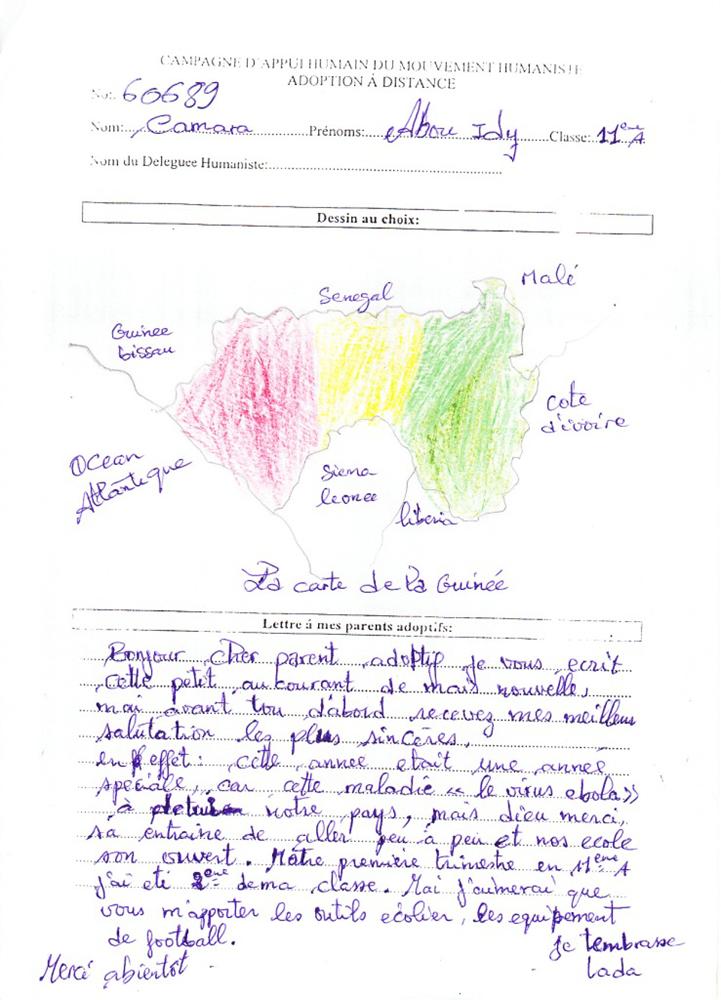 CAMPAGNE D'APPUI HUMAIN DU MOUVEMENT HUMANISTE
ADOPTION Á DISTANCE
No: 60689
Nom: Camara Prénoms: Abou Idy Classe: 11eme A
Nom du Deleguee Humaniste:
Dessin au choix:
Senegal
Malé
Guinee
bissau
cote
d'ivoire
Ocean
Atlantique
Siena
leonee
liberia
La carte de la Guinée
Lettre á mes parents adoptifs:
Bonjour cher parent adoptif je vous ecrit
cette petit au courant de mais nouvelle,
mai avant tou d'abord recevez mes meilleus
salutation les plus sincères.
en effet: cette annee etait une annee
speciale, car cette maladie « le virus ebola»
à notre pays, mais dieu merci,
sa entraine de aller peu à peu et nos ecole
son ouvert. Môtre premiere trimestre en 11eme A
j'ai eté 2eme de ma classe. Mai j'aimerai que
vous m'apporter les outils ecolier, les equipement
de football.
je tembrasse
Merci abientôt.
lada